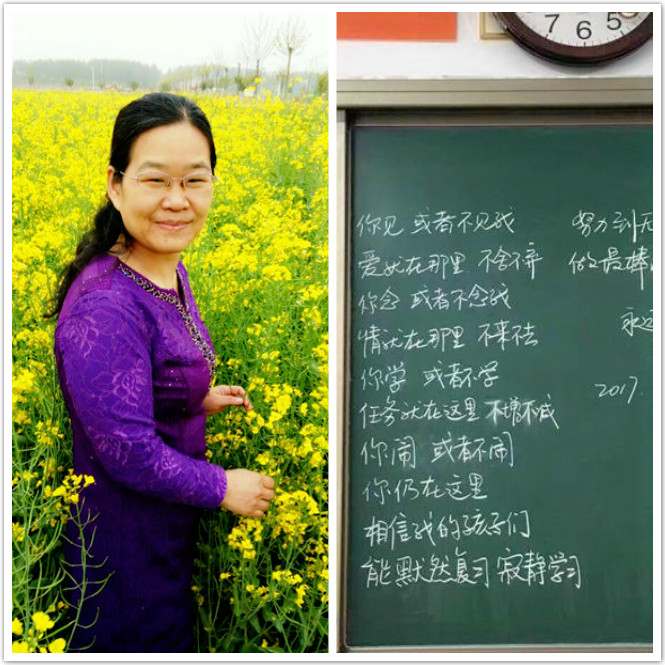 7 6 5
你见 或者不见我
爱就在那里 不舍不弃
你念 或者不念我
情就在那里 不来不去
你学 或者不学
任务就在这里 不增不减
你闹 或者不闹
你仍在这里
相信我的孩子们
能默然复习 寂静学习
努力到无
做最棒
永远
2017.